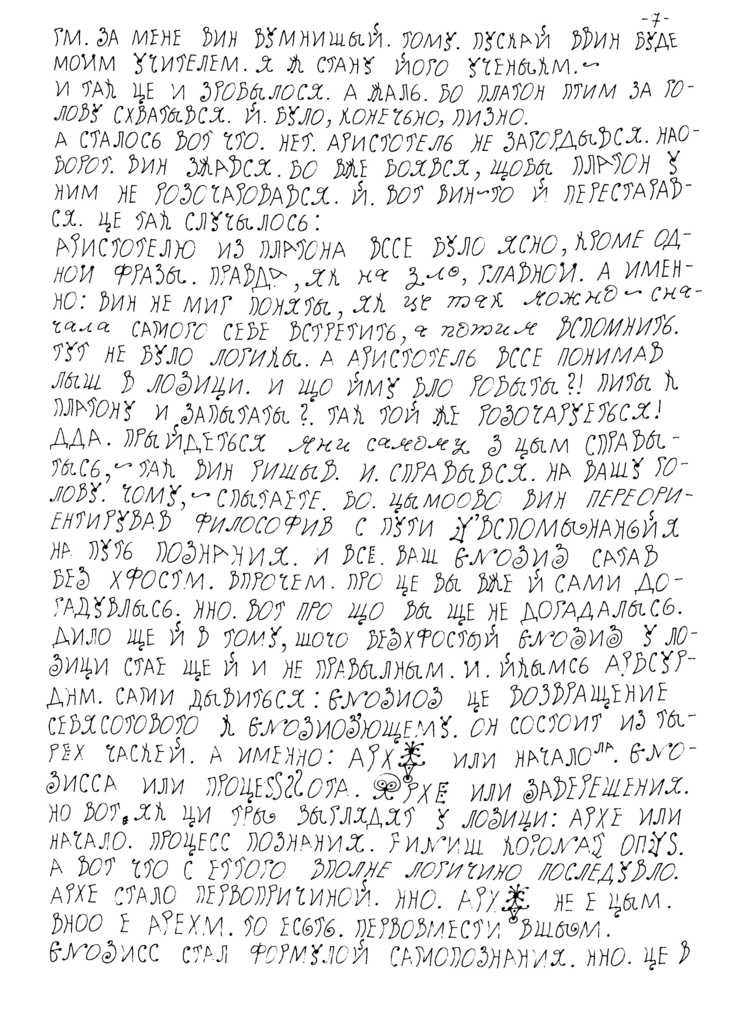 -7-
ГМ. ЗА МЕНЕ ВИН ВУМНИШЫЙ. ТОМУ. ПУСКАЙ ВВИН БУДЕ
МОИМ УЧИТЕЛЕМ. Я К СТАНУ ЙОГО УЧЕНЫКМ.~
И ТАК ЦЕ И ЗРОБЫЛОСЯ. А ЖАЛЬ. БО ПЛАТОН ПТИМ ЗА ГО-
ЛОВУ СХВАТЫВСЯ. Й. БУЛО, КОНЕЧЬНО, ПИЗНО.
А СТАЛОСЬ ВОТ ЧТО. НЕТ. АРИСТОТЕЛЬ НЕ ЗАГОРДЫВСЯ. НАО-
БОРОТ. ВИН ЗЖАВСЯ. БО ВЖЕ БОЯВСЯ, ЩОБЫ ПЛАТОН У
НИМ НЕ РОЗОЧАРОВАВСЯ. Й. ВОТ ВИН~ТО Й ПЕРЕСТАРАВ-
СЯ. ЦЕ ТАК СЛУЧЫЛОСЬ:
АРИСТОТЕЛЮ ИЗ ПЛАТОНА ВССЕ БУЛО ЯСНО, КРОМЕ ОД-
НОИ ФРАЗЫ. ПРАВДА, ЯК на зло, ГЛАВНОЙ. А ИМЕН-
НО: ВИН НЕ МИГ ПОНЯТЫ, ЯК це так можно ~ сна-
чала САМОГО СЕБЕ ВСТРЕТИТЬ, а потим ВСПОМНИТЬ.
ТУТ НЕ БУЛО ЛОГИКЫ. А АРИСТОТЕЛЬ ВССЕ ПОНИМАВ
ЛЫШ В ЛОЗИЦИ. И ЩО ЙМУ БЛО РОБЫТЫ?! ПИТЫ К
ПЛАТОНУ И ЗАПЫТАТЫ?. ТАК ТОЙ ЖЕ РОЗОЧАРУЕТЬСЯ!
ДДА. ПРЫЙДЕТЬСЯ мни самому З ЦЫМ СПРАВЫ-
ТЫСЬ,~ТАК ВИН РИШЫВ. И. СПРАВЫВСЯ. НА ВАШУ ГО-
ЛОВУ. ЧОМУ,~СПЫТАЕТЕ. БО. ЦЫМООВО ВИН ПЕРЕОРИ-
ЕНТИРУВАВ ФИЛОСОФИВ С ПУТИ У'ВСПОМЫНАНЬЙЯ
НА ПУТЬ ПОЗНАНИЯ. И ВСЕ. ВАШ ГНОЗИЗ САТАВ
БЕЗ ХФОСТМ. ВПРОЧЕМ. ПРО ЦЕ ВЫ ВЖЕ Й САМИ ДО-
ГАДУВЛЫСЬ. ННО. ВОТ ПРО ЩО ВЫ ЩЕ НЕ ДОГАДАЛЫСЬ.
ДИЛО ЩЕ Й В ТОМУ, ШОЧО БЕЗХФОСТЫЙ ГНОЗИЗ У ЛО-
ЗИЦИ СТАЕ ЩЕ Й И НЕ ПРАВЫЛНЫМ. И. ЙКЫМСЬ АРБСУР-
ДНМ. САМИ ДЫВИТЬСЯ: ГНОЗИОЗ ЦЕ ВОЗВРАЩЕНИЕ
СЕБЯСОТОВОГО К ГНОЗИОЗЮЩЕМУ. ОН СОСТОИТ ИЗ ТЫ-
РЕХ ЧАСКЕЙ. А ИМЕННО: АРХ ИЛИ НАЧАЛОЛА. ГНО-
ЗИССА ИЛИ ПРОЦЕССОТА. АРХЕ ИЛИ ЗАВЕРЕШЕНИЯ.
НО ВОТ, ЯК ЦИ ТРЫ ВЫГЛЯДЯТ У ЛОЗИЦИ: АРХЕ ИЛИ
НАЧАЛО. ПРОЦЕСС ПОЗНАНИЯ. ФИНИШ
А ВОТ ЧТО С ЕТТОГО ВПОЛНЕ ЛОГИЧИНО ПОСЛЕДУВЛО.
АРХЕ СТАЛО ПЕРВОПРИЧИНОЙ. ННО. АРХ НЕ Е ЦЫМ.
ВНОО Е АРЕХМ. ТО ЕСЬТЬ. ПЕРВОВМЕСТИ ВШЫМ.
ГНОЗИСС СТАЛ ФОРМУЛОЙ САМОПОЗНАНИЯ. ННО. ЦЕ В